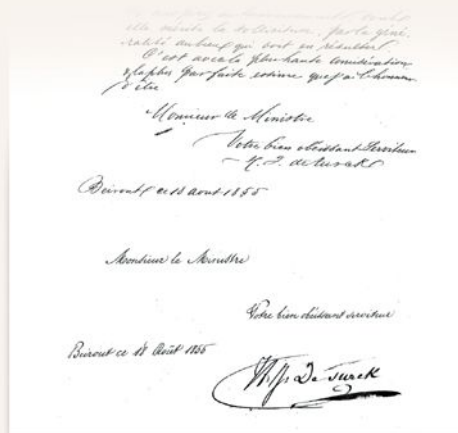 elle mérite la
ralité au lieu qui doit en résulter.
C'est avec la plus haute considération
& la plus parfaite estime que j'ai l'honneur
d'être
Monsieur le Ministre
Votre bien obéissant Serviteur
de Turck
Beirout ce 18 aout 1855
Monsieur le Ministre
Votre bien obéissant serviteur
Beirout ce 18 Août 1855
De Turck